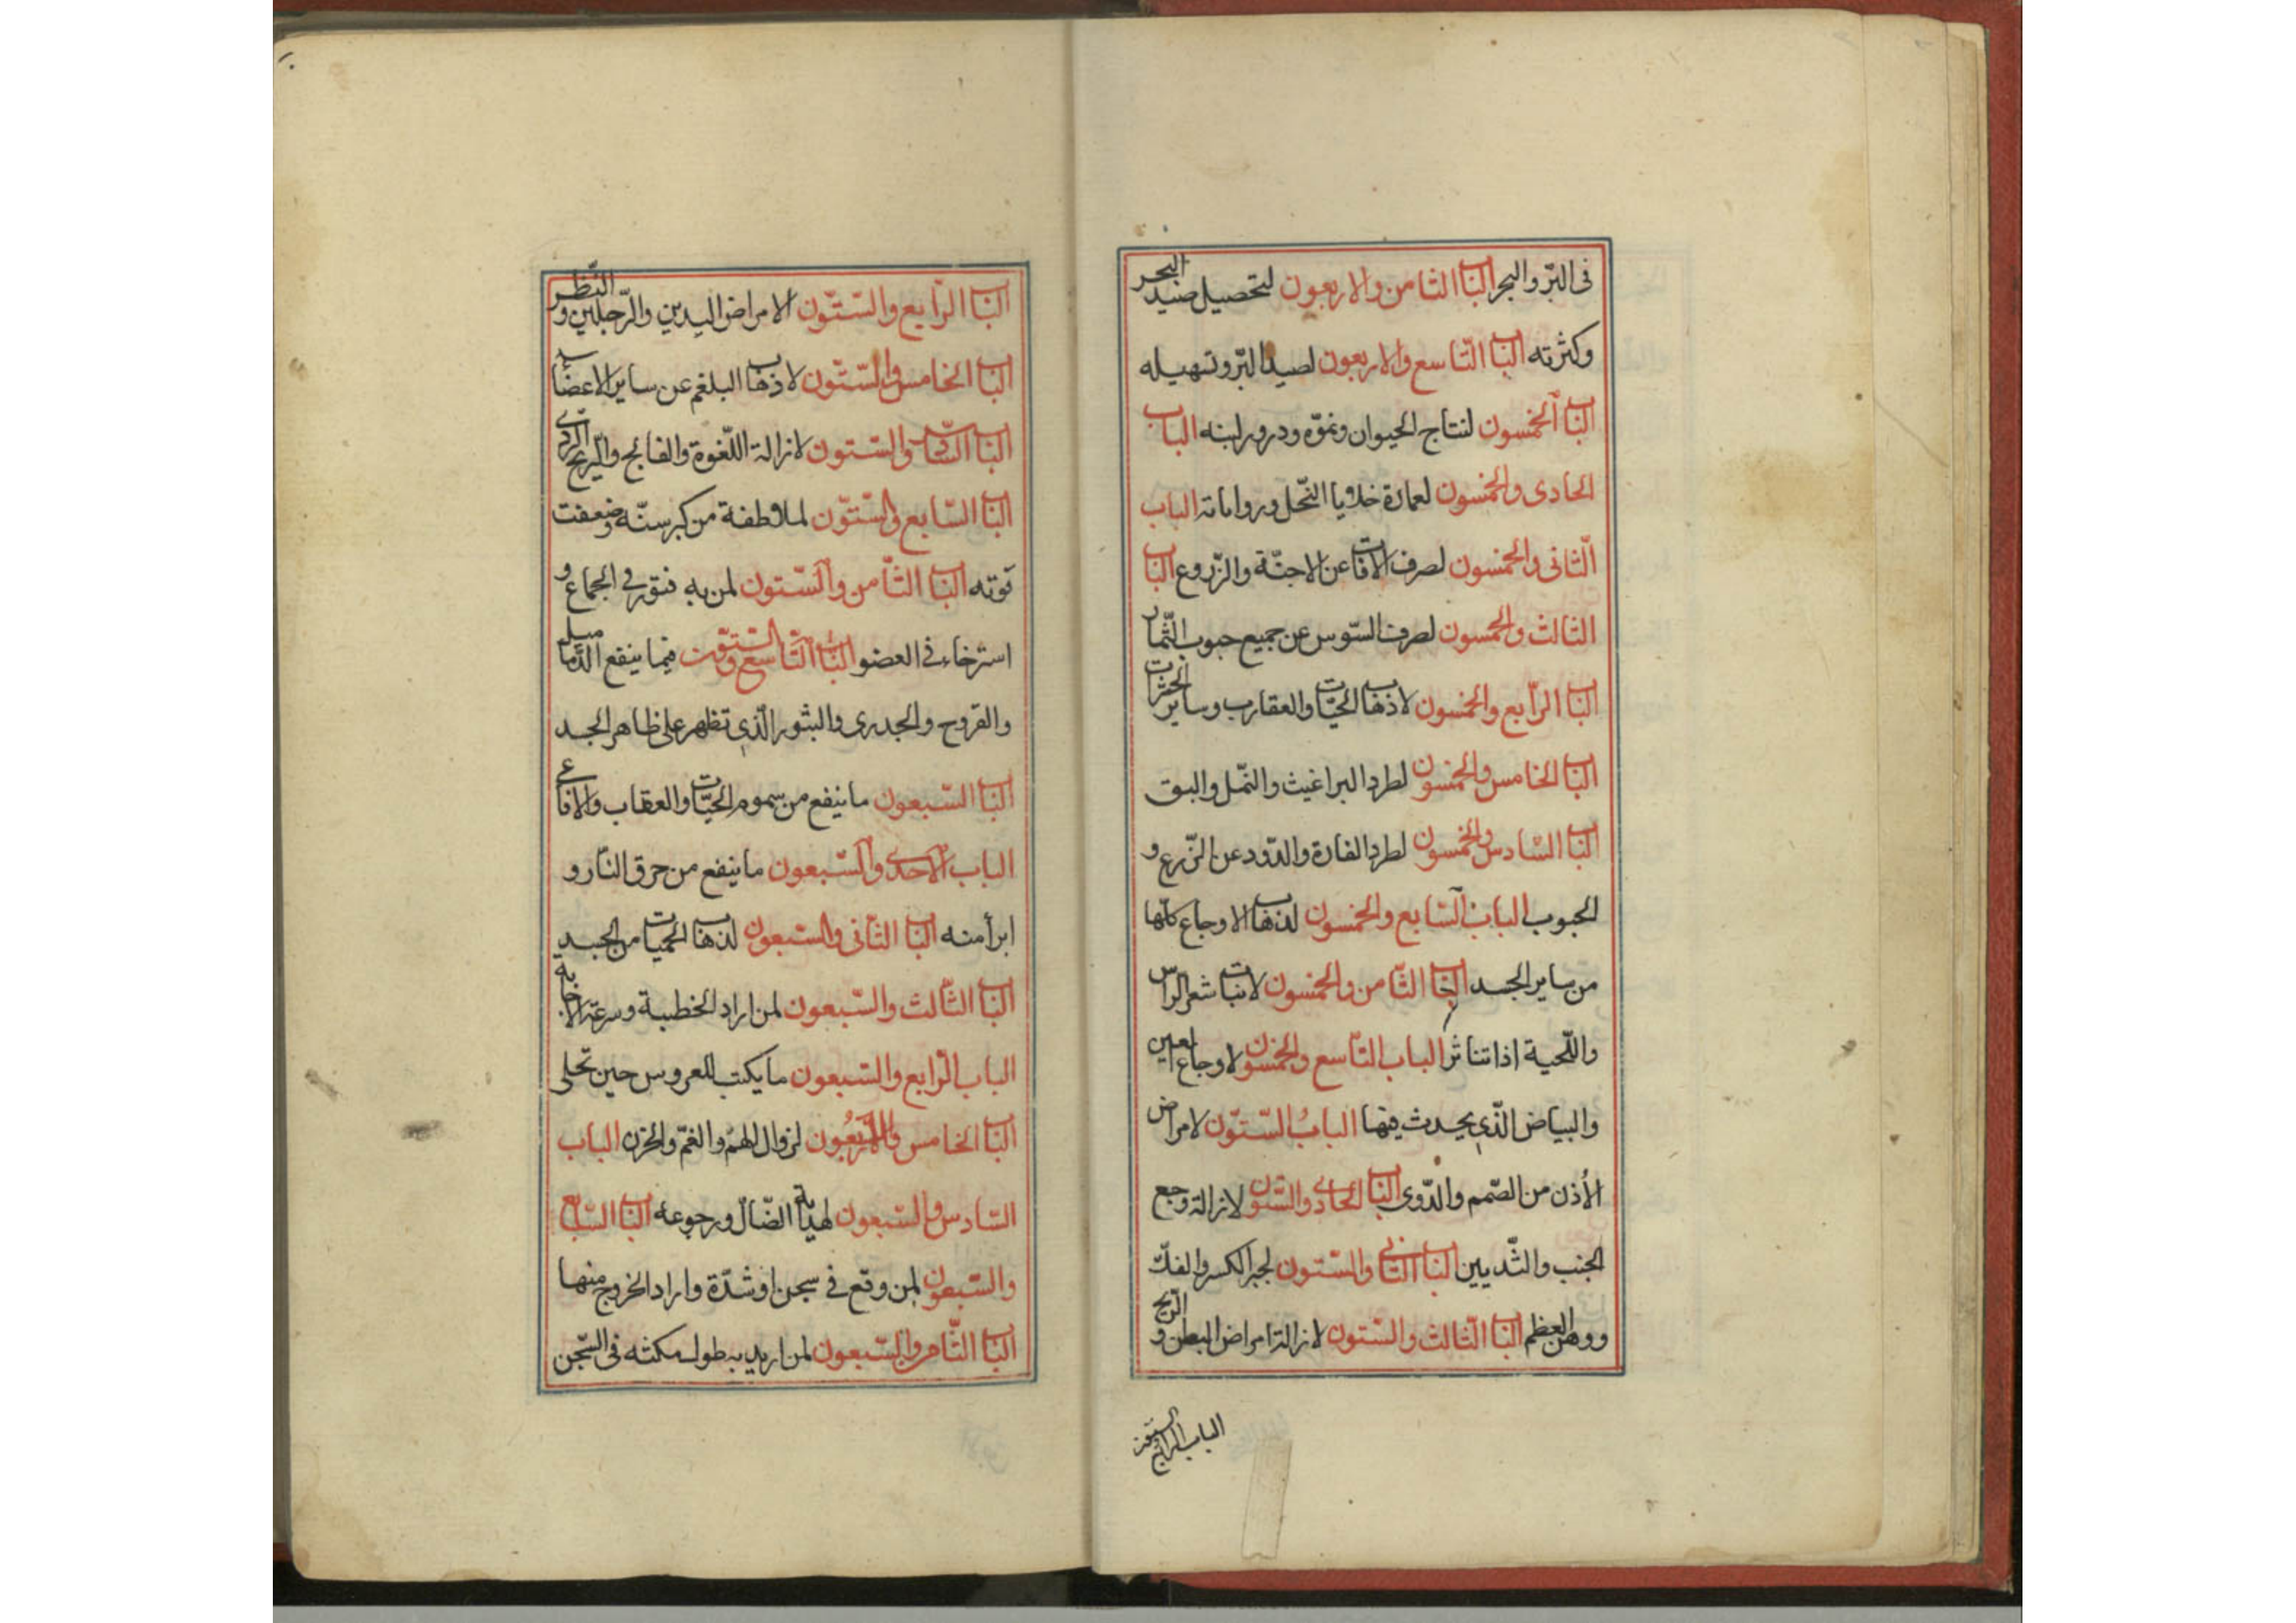 فى البرّ والبحر الباب الثامن والاربعون لتحصيل صيد البحر
وكثرته الباب التّاسع والاربعون لصيد البرّ وتسهيله
الباب الخمسون لنتاج الحيوان ونموّه ودرور لبنه الباب
الحادى والخمسون لعمارة خلايا النّحل الباب
الثّانى والخمسون لصرف الافات عن الاجنّة والزّروع الباب
الثالث والخمسون لصرف السّوس عن جميع حبوب الثّمار
الباب الرّابع والخمسون لاذهاب الحيّات والعقارب وساير الحشرات
الباب الخامس والخمسون لطرد البراغيث والنّمل والبق
الباب السّادس والخمسون لطرد الفارة والدّود عن الزّرع و
الحبوب الباب السّابع والخمسون لذهاب الاوجاع كلّها
من ساير الجسد الباب الثّامن والخمسون لانبات شعر الراس
واللّحية اذا تناثر الباب التّاسع والخمسون لاوجاع العين
والبياض الّذى يحدث فيها الباب السّتّون لامراض
الأذن من الصّمم والدّوى الباب الحادى والستّون لازالة وجع
الجنب والثّديين الباب الثانى والسّتون لجبر الكسر والفكّ
ووهن العظم الباب الثّالث والسّتون لازالة امراض البطن و الريح
الباب الرابع والستون
الباب الرّابع والسّتّون لامراض اليدين والرّجلين و النّظر
الباب الخامس والسّتّون لاذهاب البلغم عن ساير الاعضاء
الباب السّادس والسّتون لازالة اللّغوة والفالج والرّيح الردى
الباب السّابع والسّتّون لملاطفة من كبر سنّه وضعفت
قوّته الباب الثّامن والسّتون لمن به فتور فى الجماع و
استرخاء فى العضو الباب التّاسع والستّون فيما ينفع الدّماميل
والقروح والجدرى والبثور الّذى تظهر على ظاهر الجسد
الباب السّبعون ما ينفع من سموم الحيّات والعقاب والافاعى
الباب الاحدى والسّبعون ما ينفع من حرق النّار و
ابرأ منه الباب الثّانى والسبعون لذهاب الحميات من الجسد
الباب الثّالث والسّبعون لمن اراد الخطبة وسرعة الاجابة
الباب الرّابع والسّبعون ما يكتب للعروس حين تجلى
الباب الخامس لزوال الهمّ والغمّ والحزن الباب
السّادس والسّبعون لهداية الضّالّ ورجوعه الباب السّابع
والسّبعون لمن وقع فى سجن او شدّة واراد الخروج منها
الباب الثّامن والسّبعون لمن اريد به طول مكثه فى السّجن